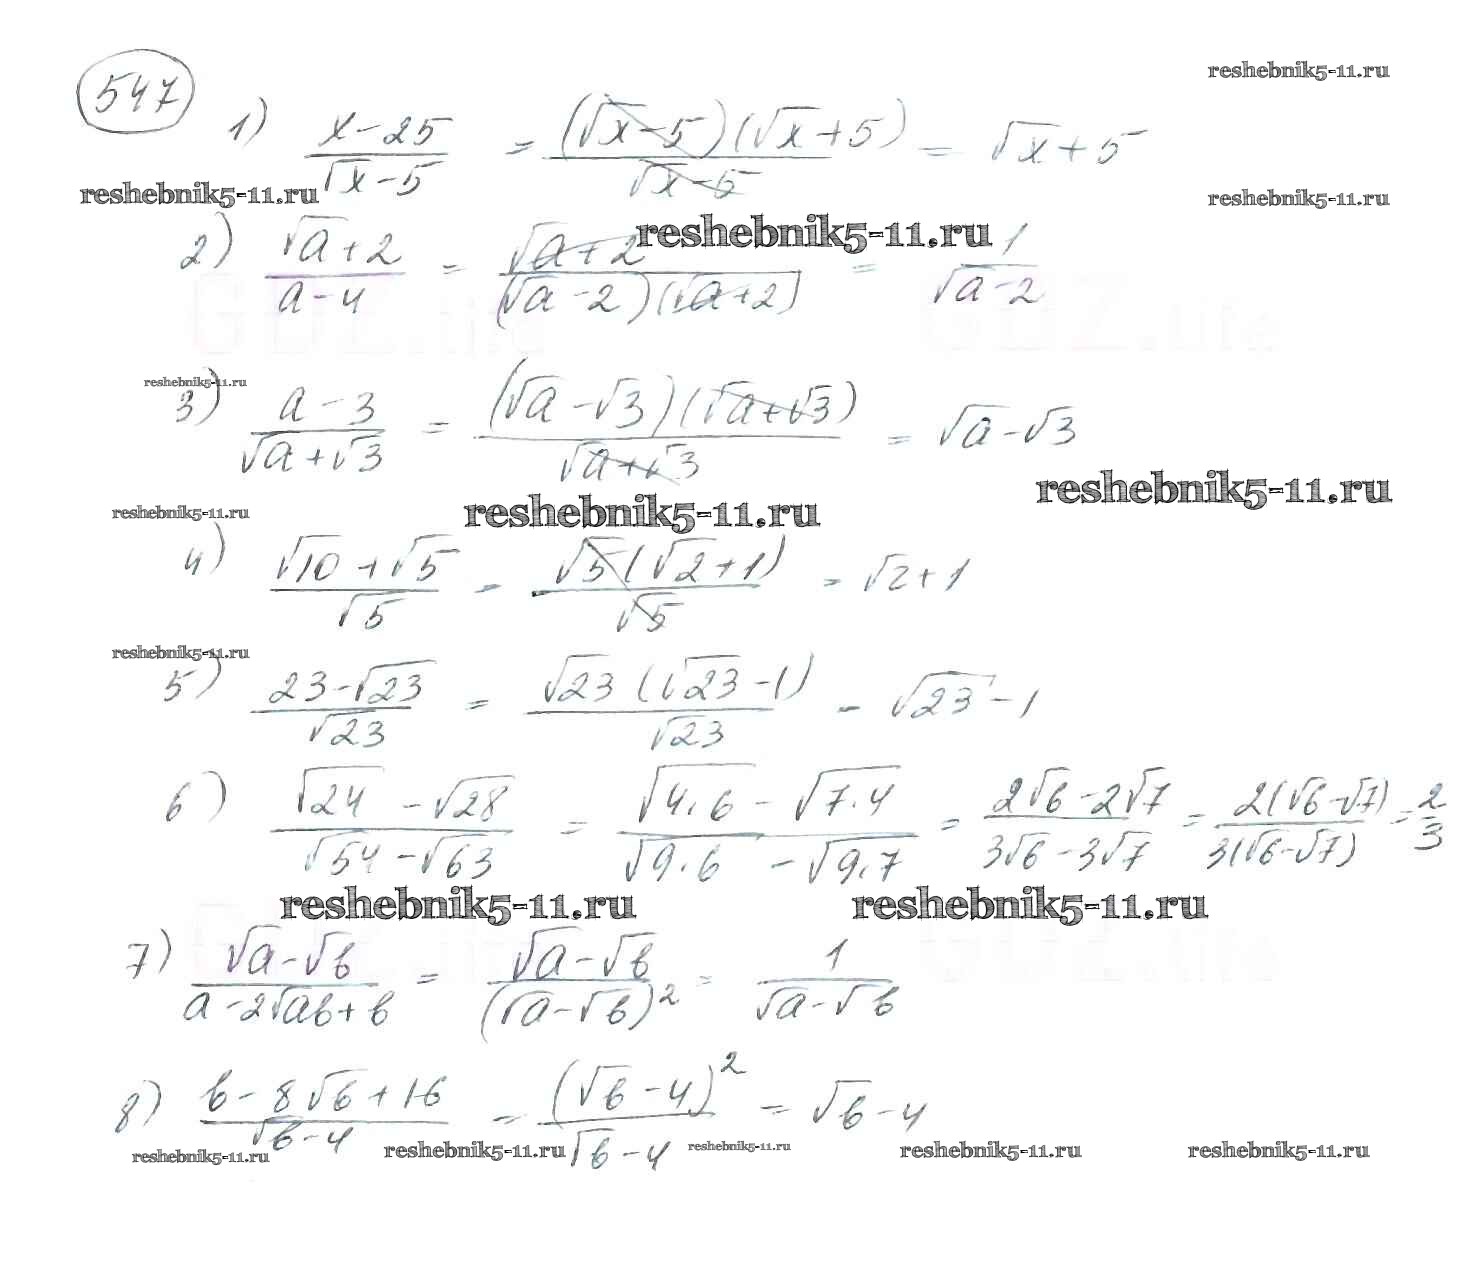 547
reshebnik5-11.ru
1) (x-25)/(√x-5) = ((√x-5)(√x+5))/(√x-5) = √x+5
reshebnik5-11.ru reshebnik5-11.ru
reshebnik5-11.ru
2) (√a+2)/(a-4) = (√a+2)/((√a-2)(√a+2)) = 1/(√a-2)
GDZ.life GDZ.life
reshebnik5-11.ru
3) (a-3)/(√a+√3) = ((√a-√3)(√a+√3))/(√a+√3) = √a-√3
reshebnik5-11.ru
reshebnik5-11.ru reshebnik5-11.ru
4) (√10+√5)/√5 = (√5(√2+1))/√5 = √2+1
reshebnik5-11.ru
5) (23-√23)/√23 = (√23(√23-1))/√23 = √23-1
6) (√24-√28)/(√54-√63) = (√4·6-√7·4)/(√9·6-√9·7) = (2√6-2√7)/(3√6-3√7) = (2(√6-√7))/(3(√6-√7)) = 2/3
reshebnik5-11.ru reshebnik5-11.ru
GDZ.life GDZ.life
7) (√a-√b)/(a-2√ab+b) = (√a-√b)/(√a-√b)² = 1/(√a-√b)
8) (b-8√b+16)/(√b-4) = (√b-4)²/(√b-4) = √b-4
reshebnik5-11.ru reshebnik5-11.ru reshebnik5-11.ru reshebnik5-11.ru reshebnik5-11.ru